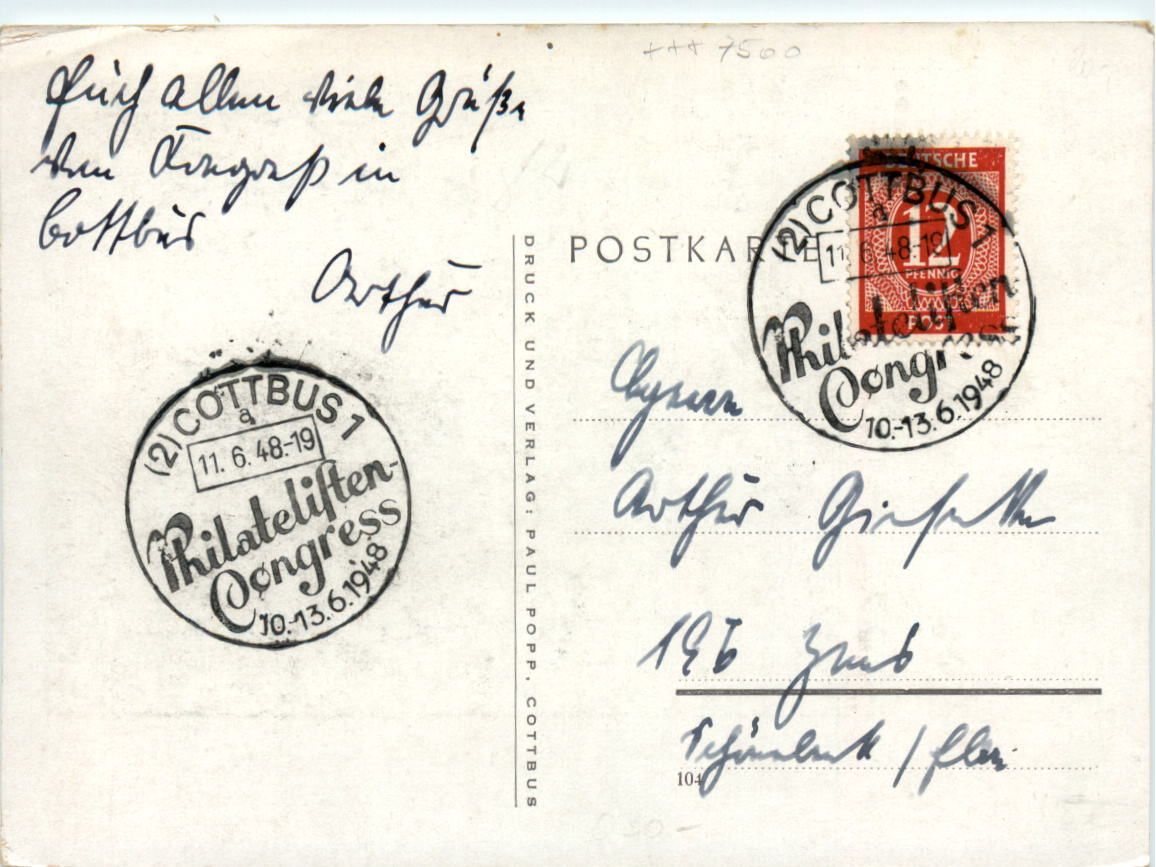 +++ 7500
Euch allen viele Grüße
vom Kongreß in
Cottbus
Arthur
(2) COTTBUS 1
a
11. 6. 48.-19
Philatelisten-
Congress
10.-13.6.1948
DRUCK UND VERLAG: PAUL POPP, COTTBUS
POSTKARTE
DEUTSCHE
12
PFENNIG
POST
(2) COTTBUS 1
a
11. 6. 48-19
Philatelisten-
Congress
10.-13.6.1948
Arthur
19b
Schönebeck / Elbe
104